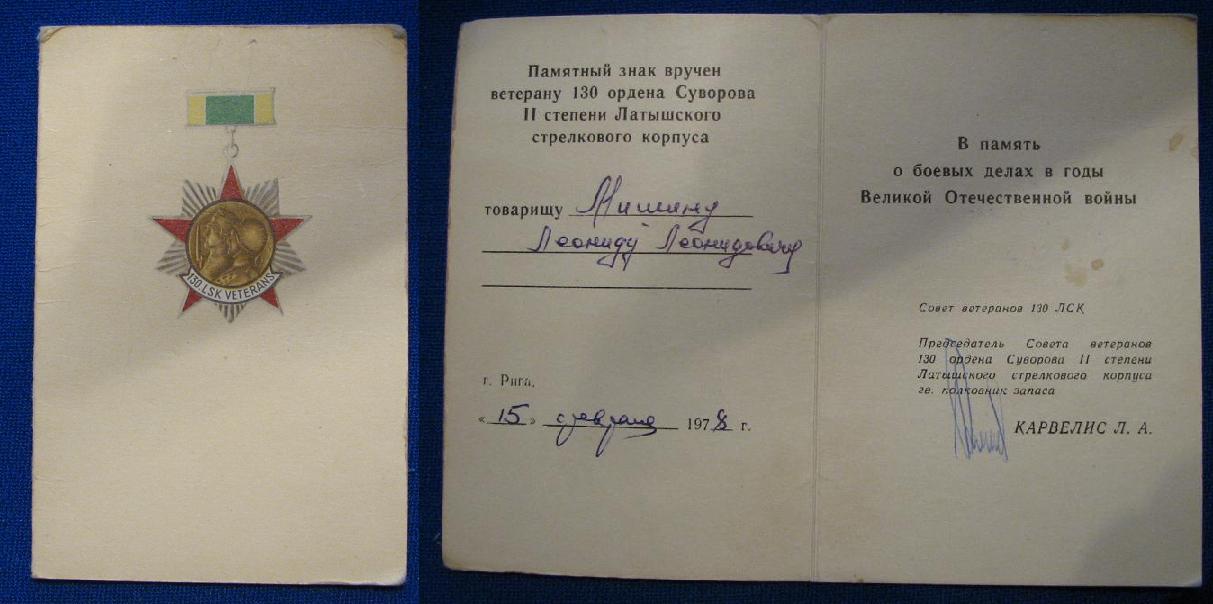 130 LSK VETERANS
Памятный знак вручен
ветерану 130 ордена Суворова
II степени Латышского
стрелкового корпуса
товарищу Мишину
Леониду Леонидовичу
г. Рига,
«15» февраля 1978 г.
В память
о боевых делах в годы
Великой Отечественной войны
Совет ветеранов 130 ЛСК
Председатель Совета ветеранов
130 ордена Суворова II степени
Латышского стрелкового корпуса
гв. полковник запаса
КАРВЕЛИС Л. А.